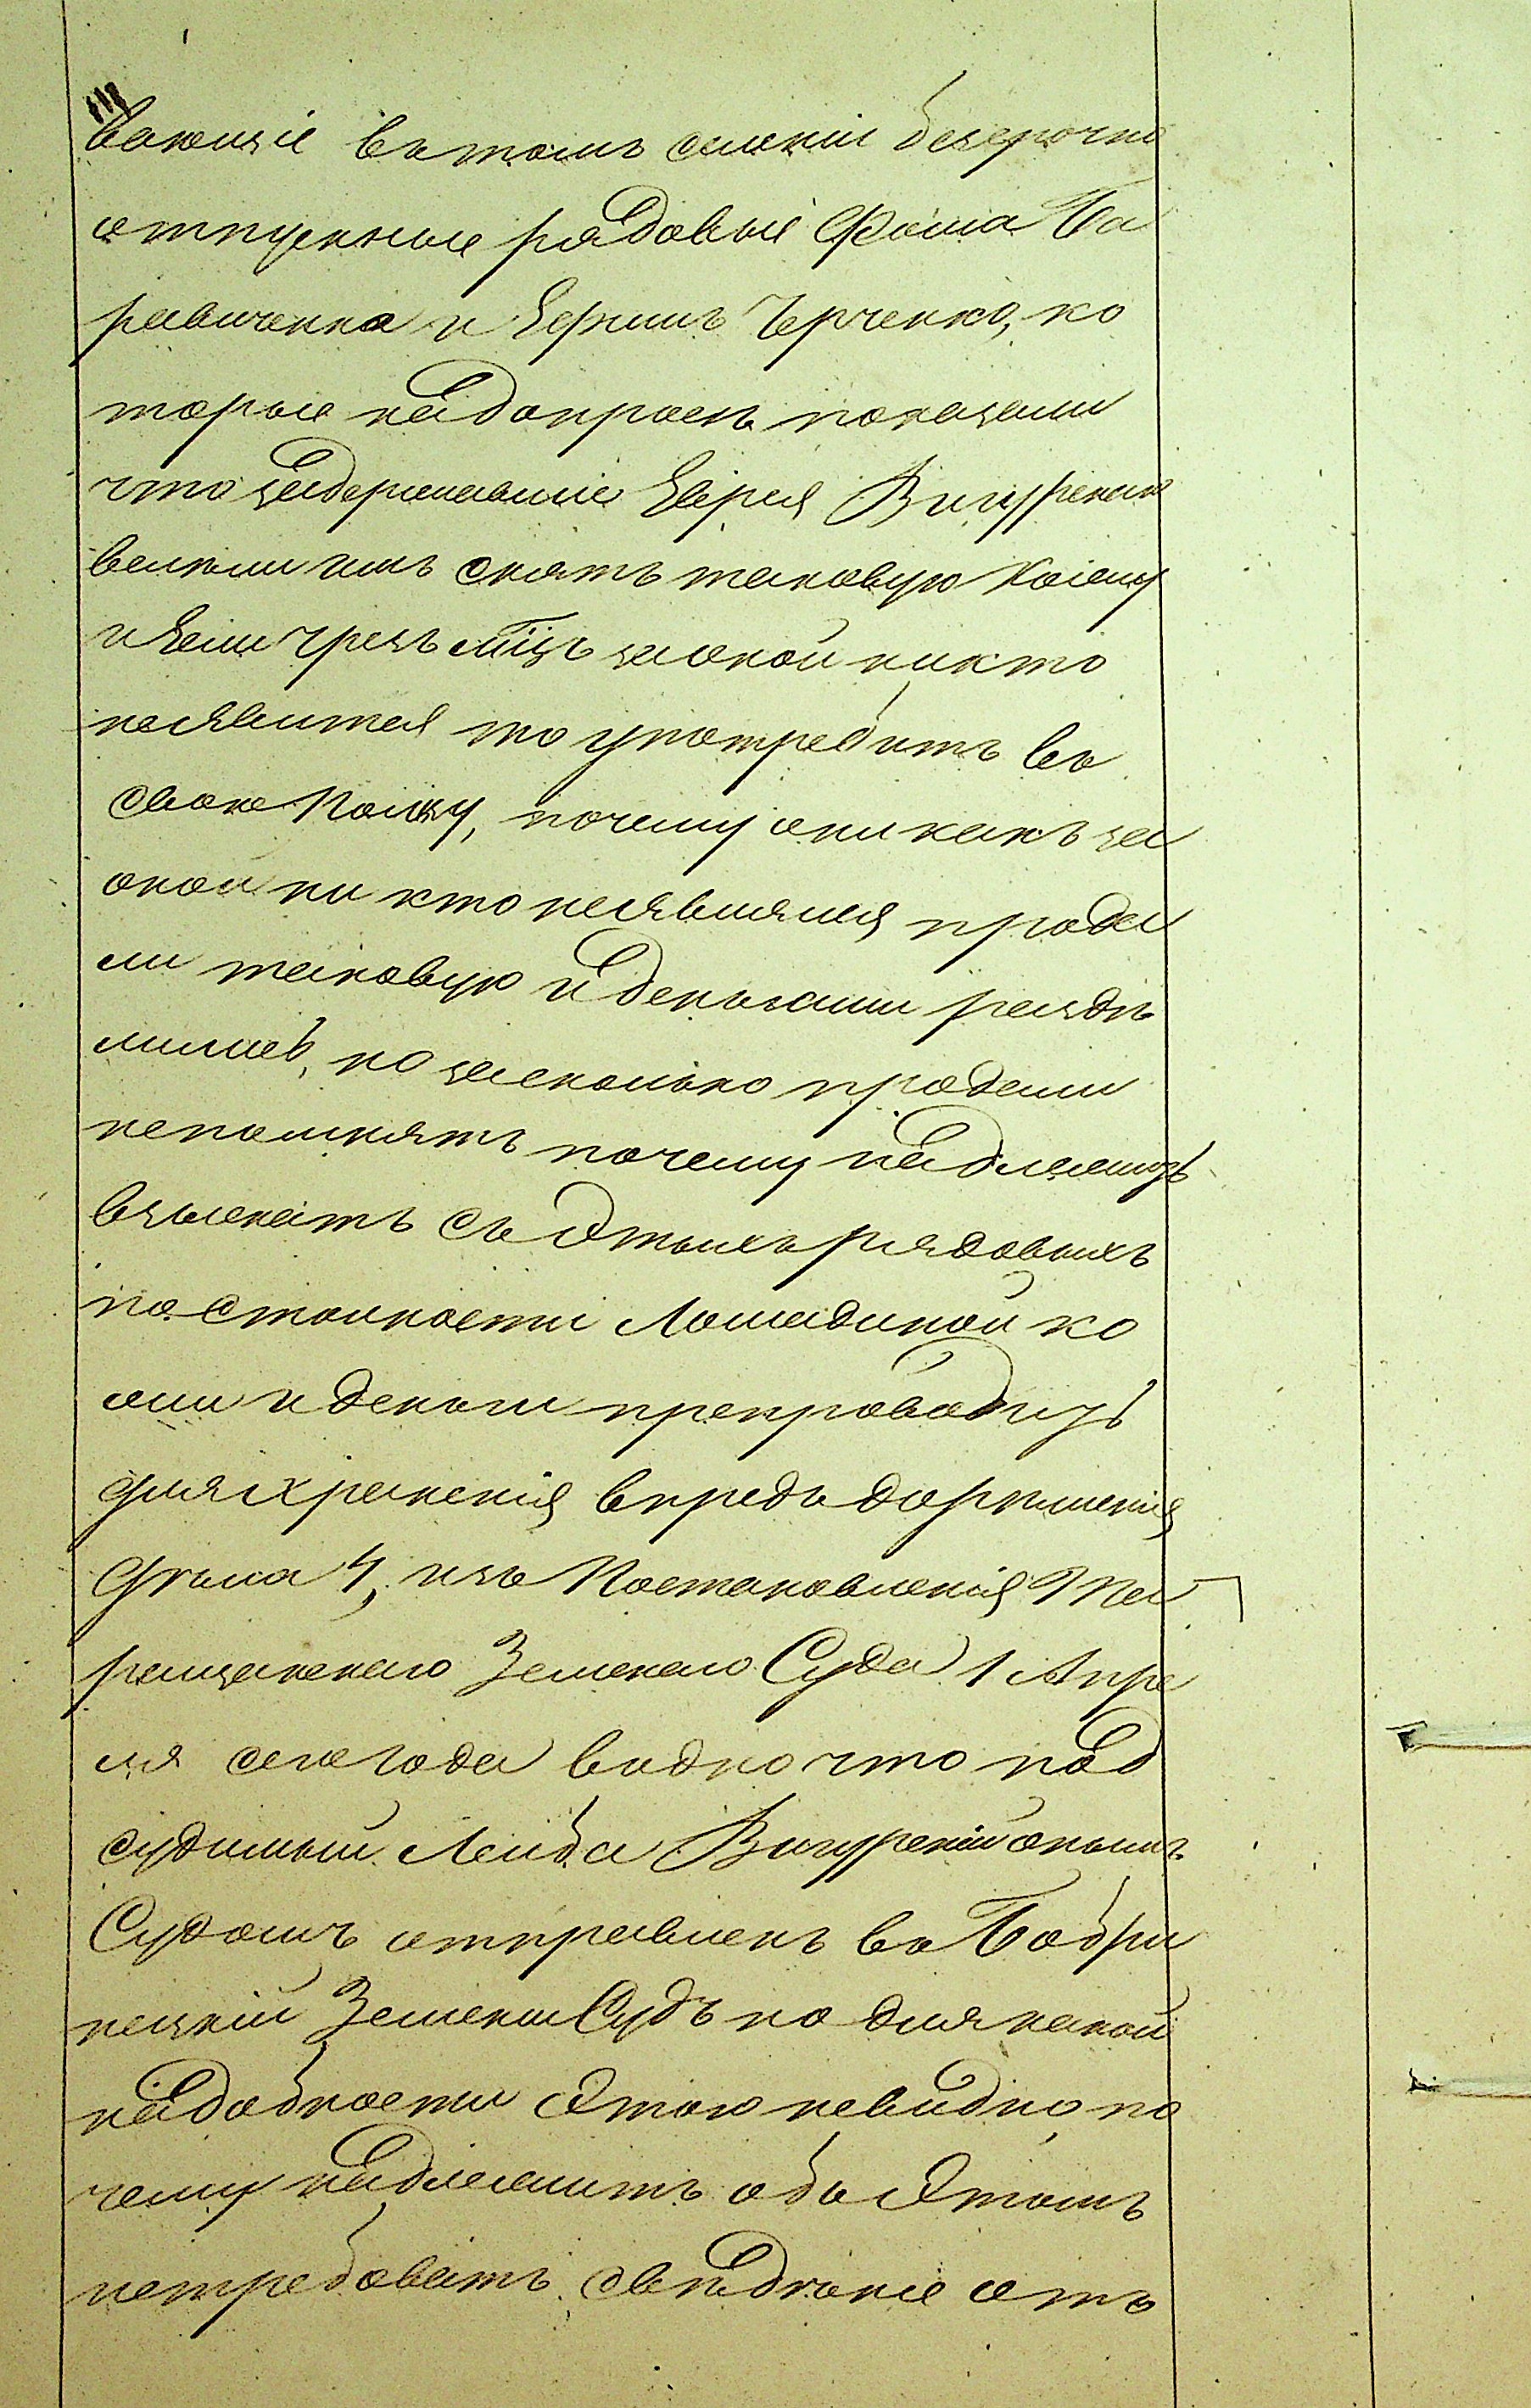 вающіе въ томъ селеніи безсрочно
отпускные рядовые Фома Га
равиченко и Ефимъ Черченко, ко
торые на допросѣ показали
что задержавшіе Еврея Вигурскаго
велѣли имъ снять таковую кожу
и Если чрезъ мѣсцъ за оной никто
неявится то употребить въ
свою Пользу, почему они какъ за
оной ни кто неявлялся прода
ли таковую и деньгами раздѣ
лились, но за сколько продали
непомнятъ почему надлежитъ
взыскать съ этихъ рядовыхъ
по стоимости Лошадиной ко
жи и деньги препроводить
для храненія впредь до рѣшенія
дѣла 4, изъ Постановленія Ти
распольскаго Земскаго Суда 1 Апрѣ
ля сего года видно что под
судимый Лейба Вигурскій онымъ
Судомъ отправленъ въ Бобри
нецкій Земскій Судъ но для какой
надобности этого невидно, по
чему надлежитъ объ этомъ
истребовать свѣдѣніе отъ